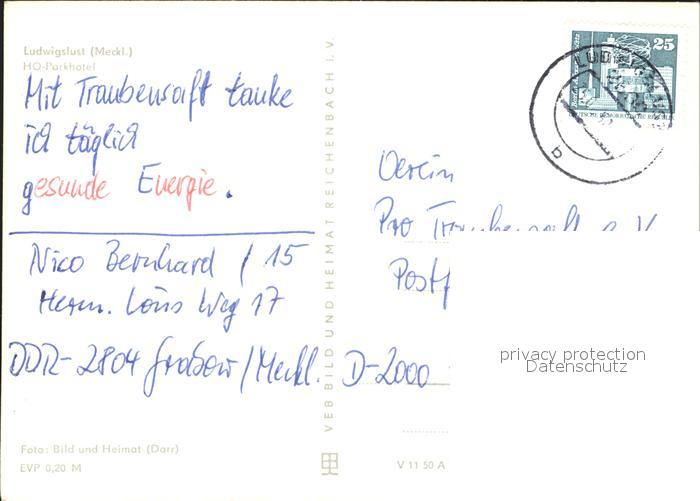 Ludwigslust (Meckl.)
HO-Parkhotel
Mit Traubensaft tanke
ich täglich
gesunde Energie.
Nico Bernhard / 15
Herm. Löns Weg 17
DDR-2804 Grabow/Meckl.
Foto: Bild und Heimat (Darr)
EVP 0,20 M
VEB BILD UND HEIMAT REICHENBACH I. V.
V 11 50 A
25
DEUTSCHE DEMOKRATISCHE REPUBLIK
b
Verein
Pro Traubensaft e.V.
Postf
D-2000
privacy protection
Datenschutz